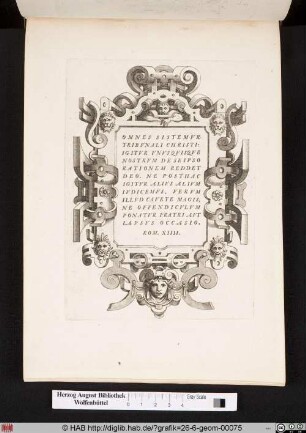 OMNES SISTEMVR
TRIBVNALI CHRISTI:
IGITVR VNVSQVISQVE
NOSTRVM DE SE IPSO
RATIONEM REDDET
DEO. NE POSTHAC
IGITVR ALIVS ALIVM
IVDICEMVS, VERVM
ILLVD CAVETE MAGIS,
NE OFFENDICVLVM
PONATVR FRATRI AVT
LAPSVS OCCASIO.
ROM. XIIII.
Herzog August Bibliothek
Wolfenbüttel
© HAB http://diglib.hab.de/?grafik=26-6-geom-00075